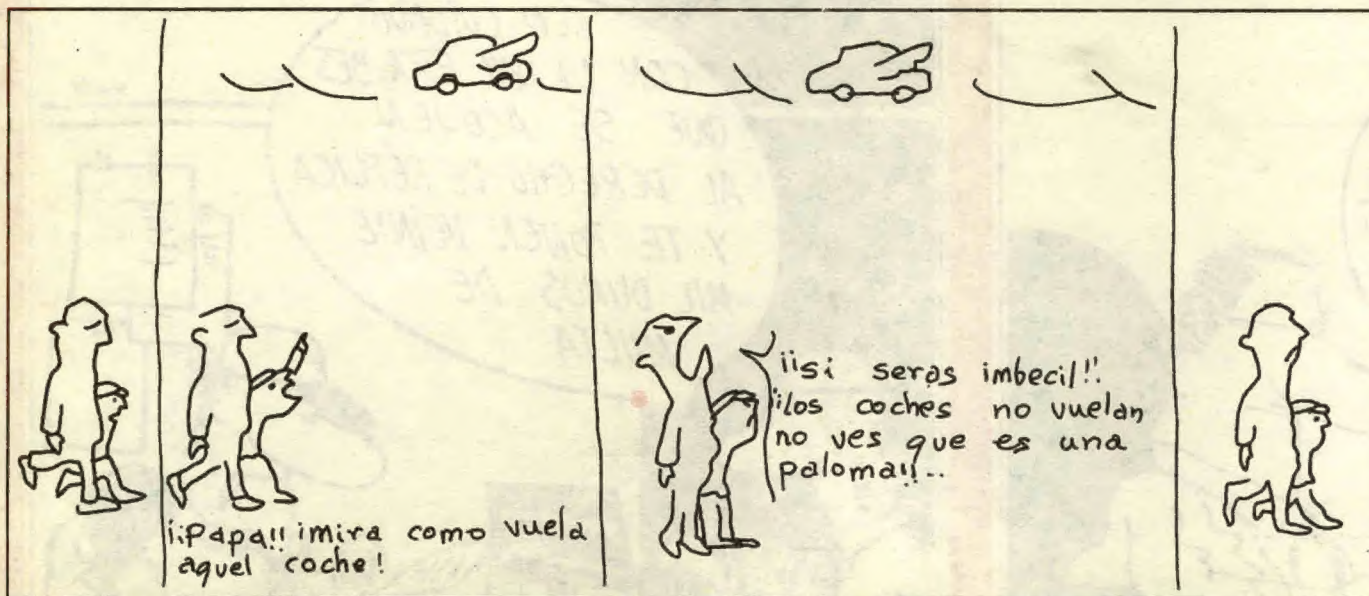 ¡¡Papa!! ¡mira como vuela
aquel coche!
¡¡si seras imbecil!!.
¡¡los coches no vuelan
no ves que es una
paloma!!..